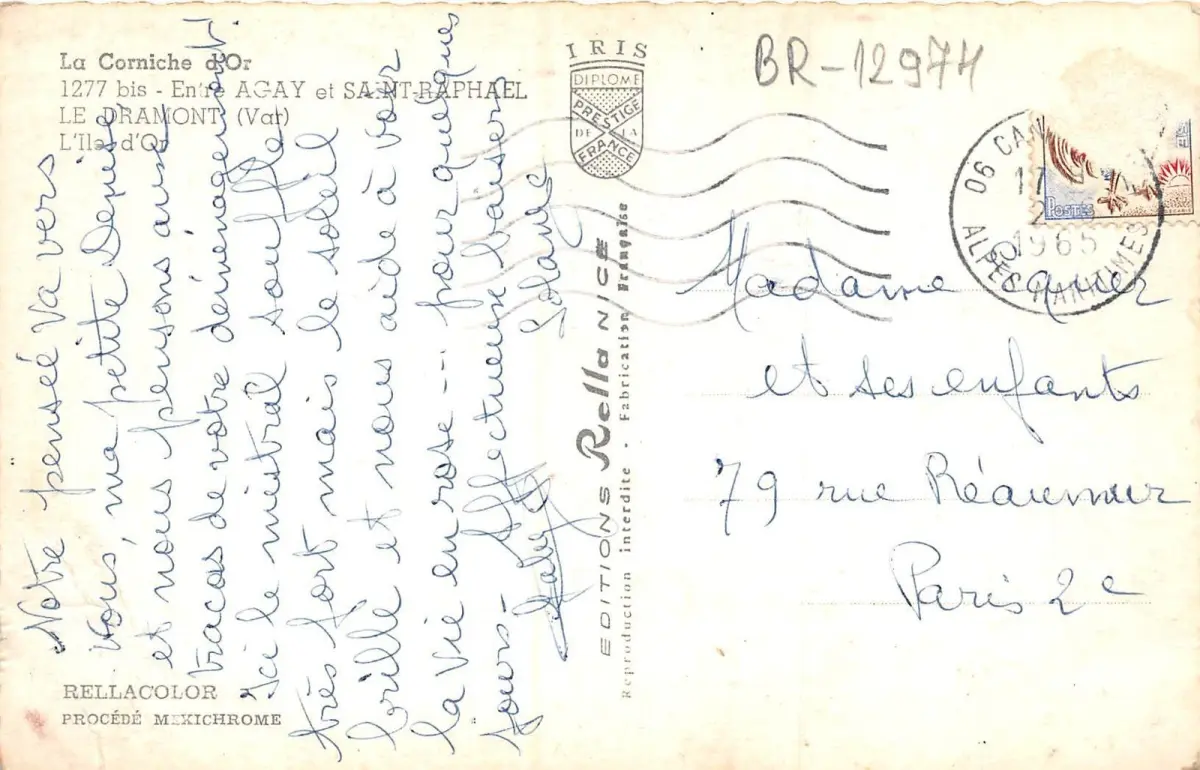 La Corniche d'Or
1277 bis - Entre AGAY et SAINT-RAPHAEL
LE DRAMONT (Var)
L'Ile d'Or
Notre pensée va vers
vous, ma petite Denise
et nous pensons aux
tracas de votre déménagement.
Ici le mistral souffle
très fort mais le soleil
brille et nous aide à voir
la vie en rose -- pour quelques
jours - Affectueux baisers
Solange
RELLACOLOR
PROCÉDÉ MEXICHROME
IRIS
DIPLOME
PRESTIGE
DE LA
FRANCE
EDITIONS Rella NICE
Reproduction interdite - Fabrication Française
BR-12974
06 CA
17
1965
ALPES MARITIMES
POSTES
Madame
et ses enfants
79 rue Réaumur
Paris 2e